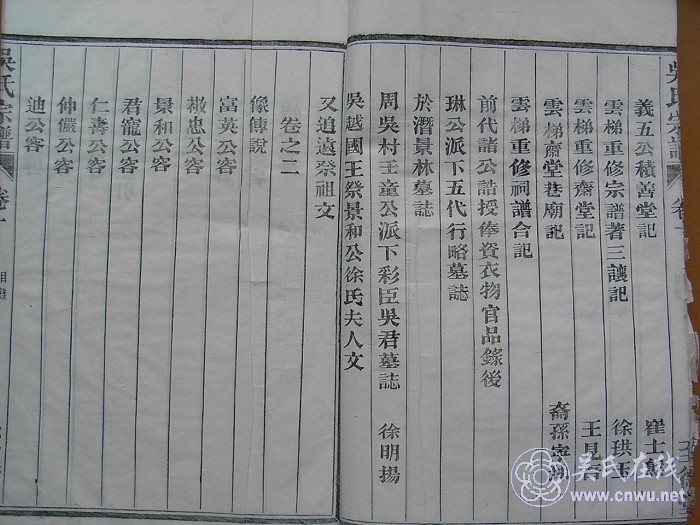 吳氏宗譜
卷一
義五公積善堂記
雲梯重修宗譜著三讓記 徐珙玉
雲梯重修齋堂記
雲梯齋堂巷廟記 裔孫
雲梯重修祠譜合記
前代諸公誥授俸資衣物官品錄後
琳公派下五代行略墓誌
於潛景林墓誌
周吳村壬童公派下彩臣吳君墓誌 徐明揚
吳越國王祭景和公徐氏夫人文
又追遠祭祖文
卷之二
像傳說
富英公容
椒忠公容
景和公容
君寵公容
仁壽公容
仲儼公容
迪公容
吳氏宗譜
卷一
目錄
吴氏在线
www.cnwu.net